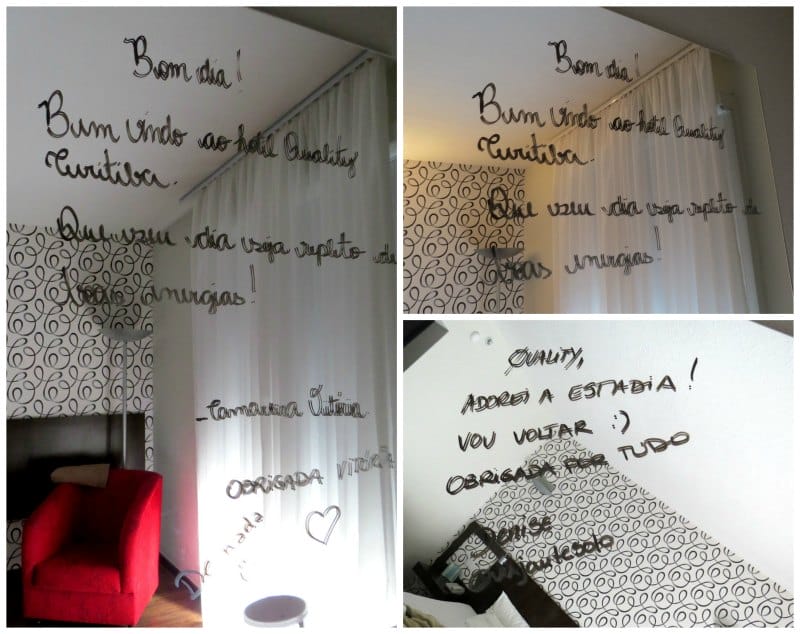 Bom dia!
Bem vindo ao hotel Quality
Curitiba.
Que seu dia seja repleto de
boas energias!
- Camareira Vitória
OBRIGADA VITÓRIA
De nada
Bom dia!
Bem vindo ao hotel Quality
Curitiba.
Que seu dia seja repleto de
boas energias!
QUALITY,
ADOREI A ESTADIA!
VOU VOLTAR :)
OBRIGADA POR TUDO
DENISE
@viajantesolo